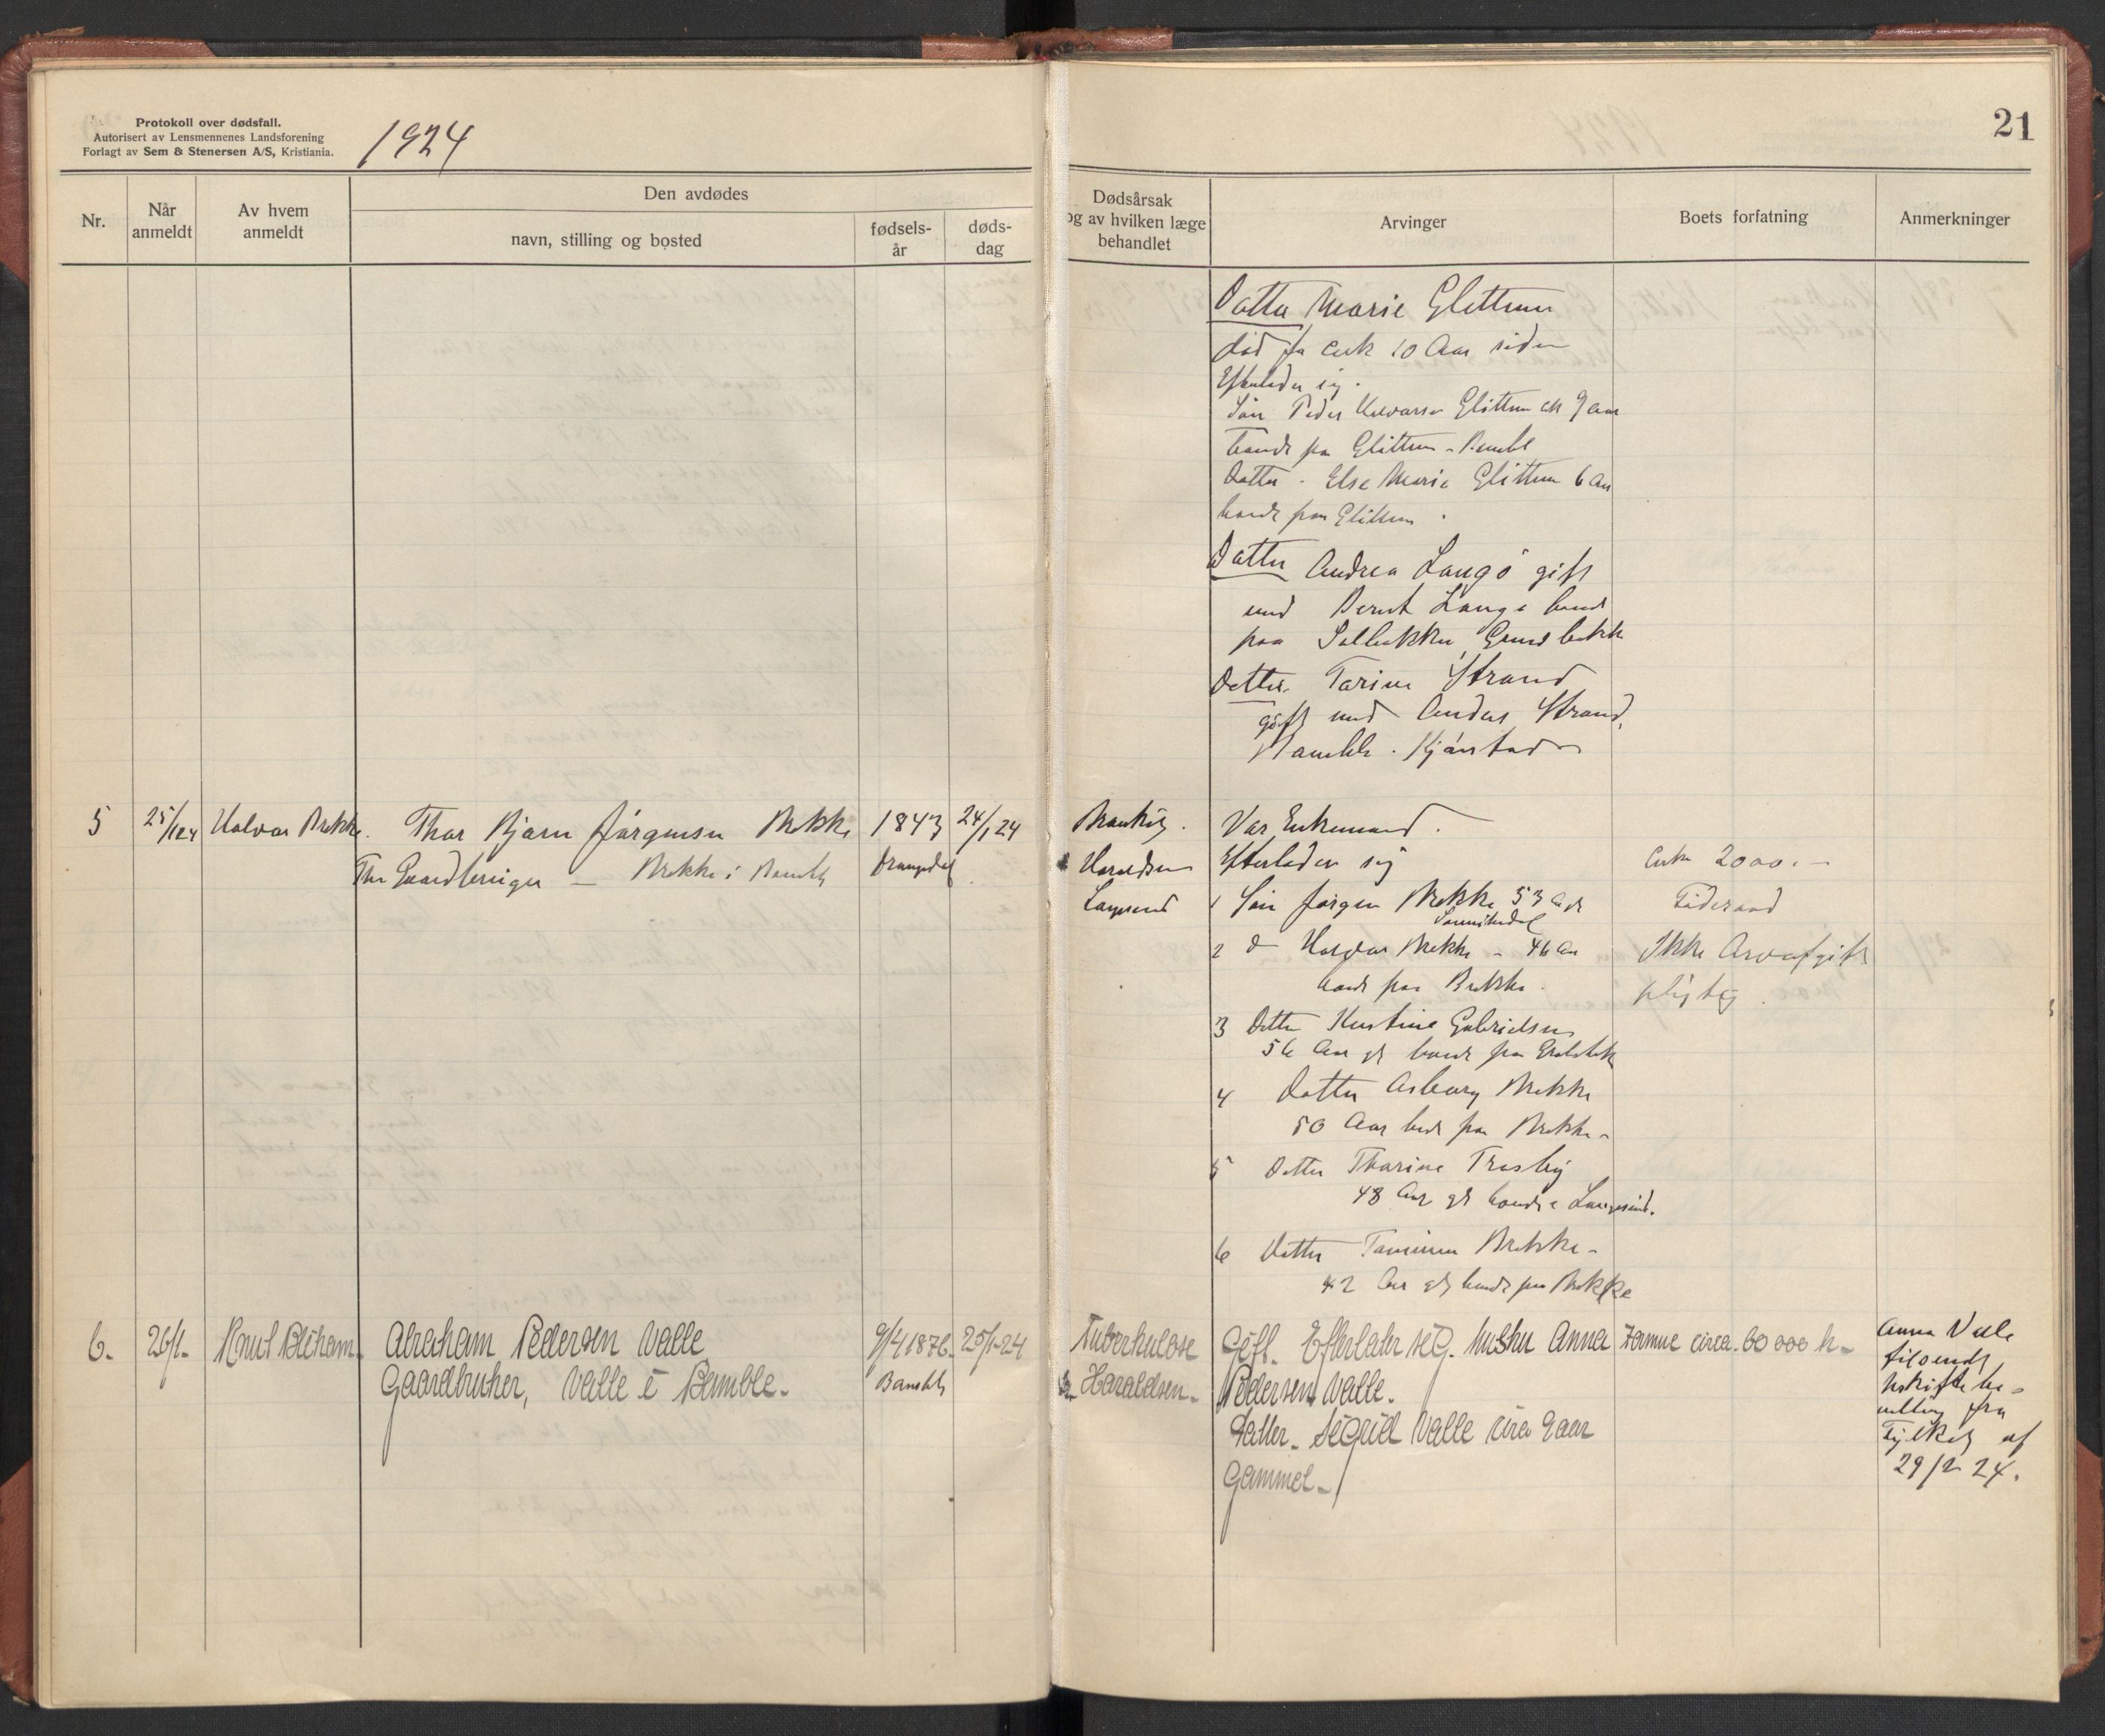 Protokoll over dødsfall.
Autorisert av Lensmennenes Landsforening
Forlagt av Sem & Stenersen A/S, Kristiania.
1924
21
Nr.
Når anmeldt
Av hvem anmeldt
Den avdødes
navn, stilling og bosted
fødsels-år
døds-dag
Dødsårsak og av hvilken læge behandlet
Arvinger
Boets forfatning
Anmerkninger
Datter Marie Glittum
død for cirk 10 Aar siden
Efterlader sig.
Søn Peder Halvorsen Glittum ca 9 aar
boende paa Glittum - Bamble
Datter - Else Marie Glittum 6 Aar
boende paa Glittum.
Datter Andrea Langø gift
med Bernt Langø boende
paa
Datter Tarine Strand
gift med Anders Strand,
Bamble.
5
25/1 24
Halvor Brekke.
Thor Bjørn Jørgensen Brekke
1843
24/1 24
Gaardbruger — Brekke i Bamble
Drangedal
Bronkitis.
Haraldsen
Langesund
Var Enkemand.
Efterlader sig
1 Søn Jørgen Brekke 53 Aar
Sannikedal
2 do Halvor Brekke - 46 Aar
boende paa Brekke.
3 Datter Kirstine Gabrielsen
56 Aar gl boende paa
4 Datter Asborg Brekke
50 Aar boende paa Brekke -
5 Datter Tharine Trosby
48 Aar gl boende i Langesund.
6 Datter Brekke -
42 Aar gl boende paa Brekke
Cirka 2000.-
Føderaad
Ikke Arveafgift
pligtig.
6.
26/1-
Knut Blæham.
Abraham Pedersen Valle
Gaardbruker, Valle i Bamble.
9/4 1876.
Bamble
25/1-24
Tuberkulose
Haraldsen.
Gift. Efterlater sig. hustru Anna
Pedersen Valle.
Datter. Sigrid Valle cirea 9 aar
Gammel.
Formue circa. 60 000 kr -
Anna Valle
tilsendt
uskifte be-
villing fra
Fylket af
29/2 24.